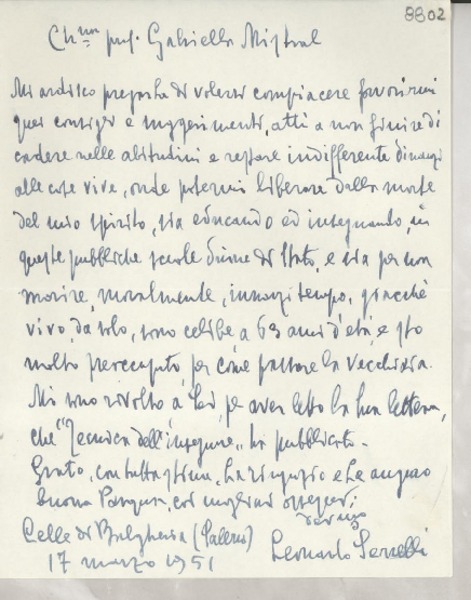 8802
Ch.mo prof. Gabriella Mistral
Mi ardisco pregarla di volersi compiacere favorirmi
quei consigli e suggerimenti, atti a non finire di
cadere nelle abitudini e restare indifferente dinanzi
alle cose vive, onde potermi liberare dalla morte
del mio spirito, sia educando ed insegnando, in
queste pubbliche scuole diurne di Stato, e sia per non
morire, moralmente, innanzi tempo, giacchè
vivo, da solo, sono celibe a 63 anni d'età, e sto
molto preoccupato, per come passare la vecchiaia.
Mi sono rivolto a Lei, per aver letto la Sua lettera,
che "Tecnica dell'insegnare" ha pubblicato.
Grato, con tutta stima, La ringrazio e Le auguro
buona Pasqua, coi migliori ossequi,
Celle di Bulgheria (Salerno)
17 marzo 1951
Leonardo